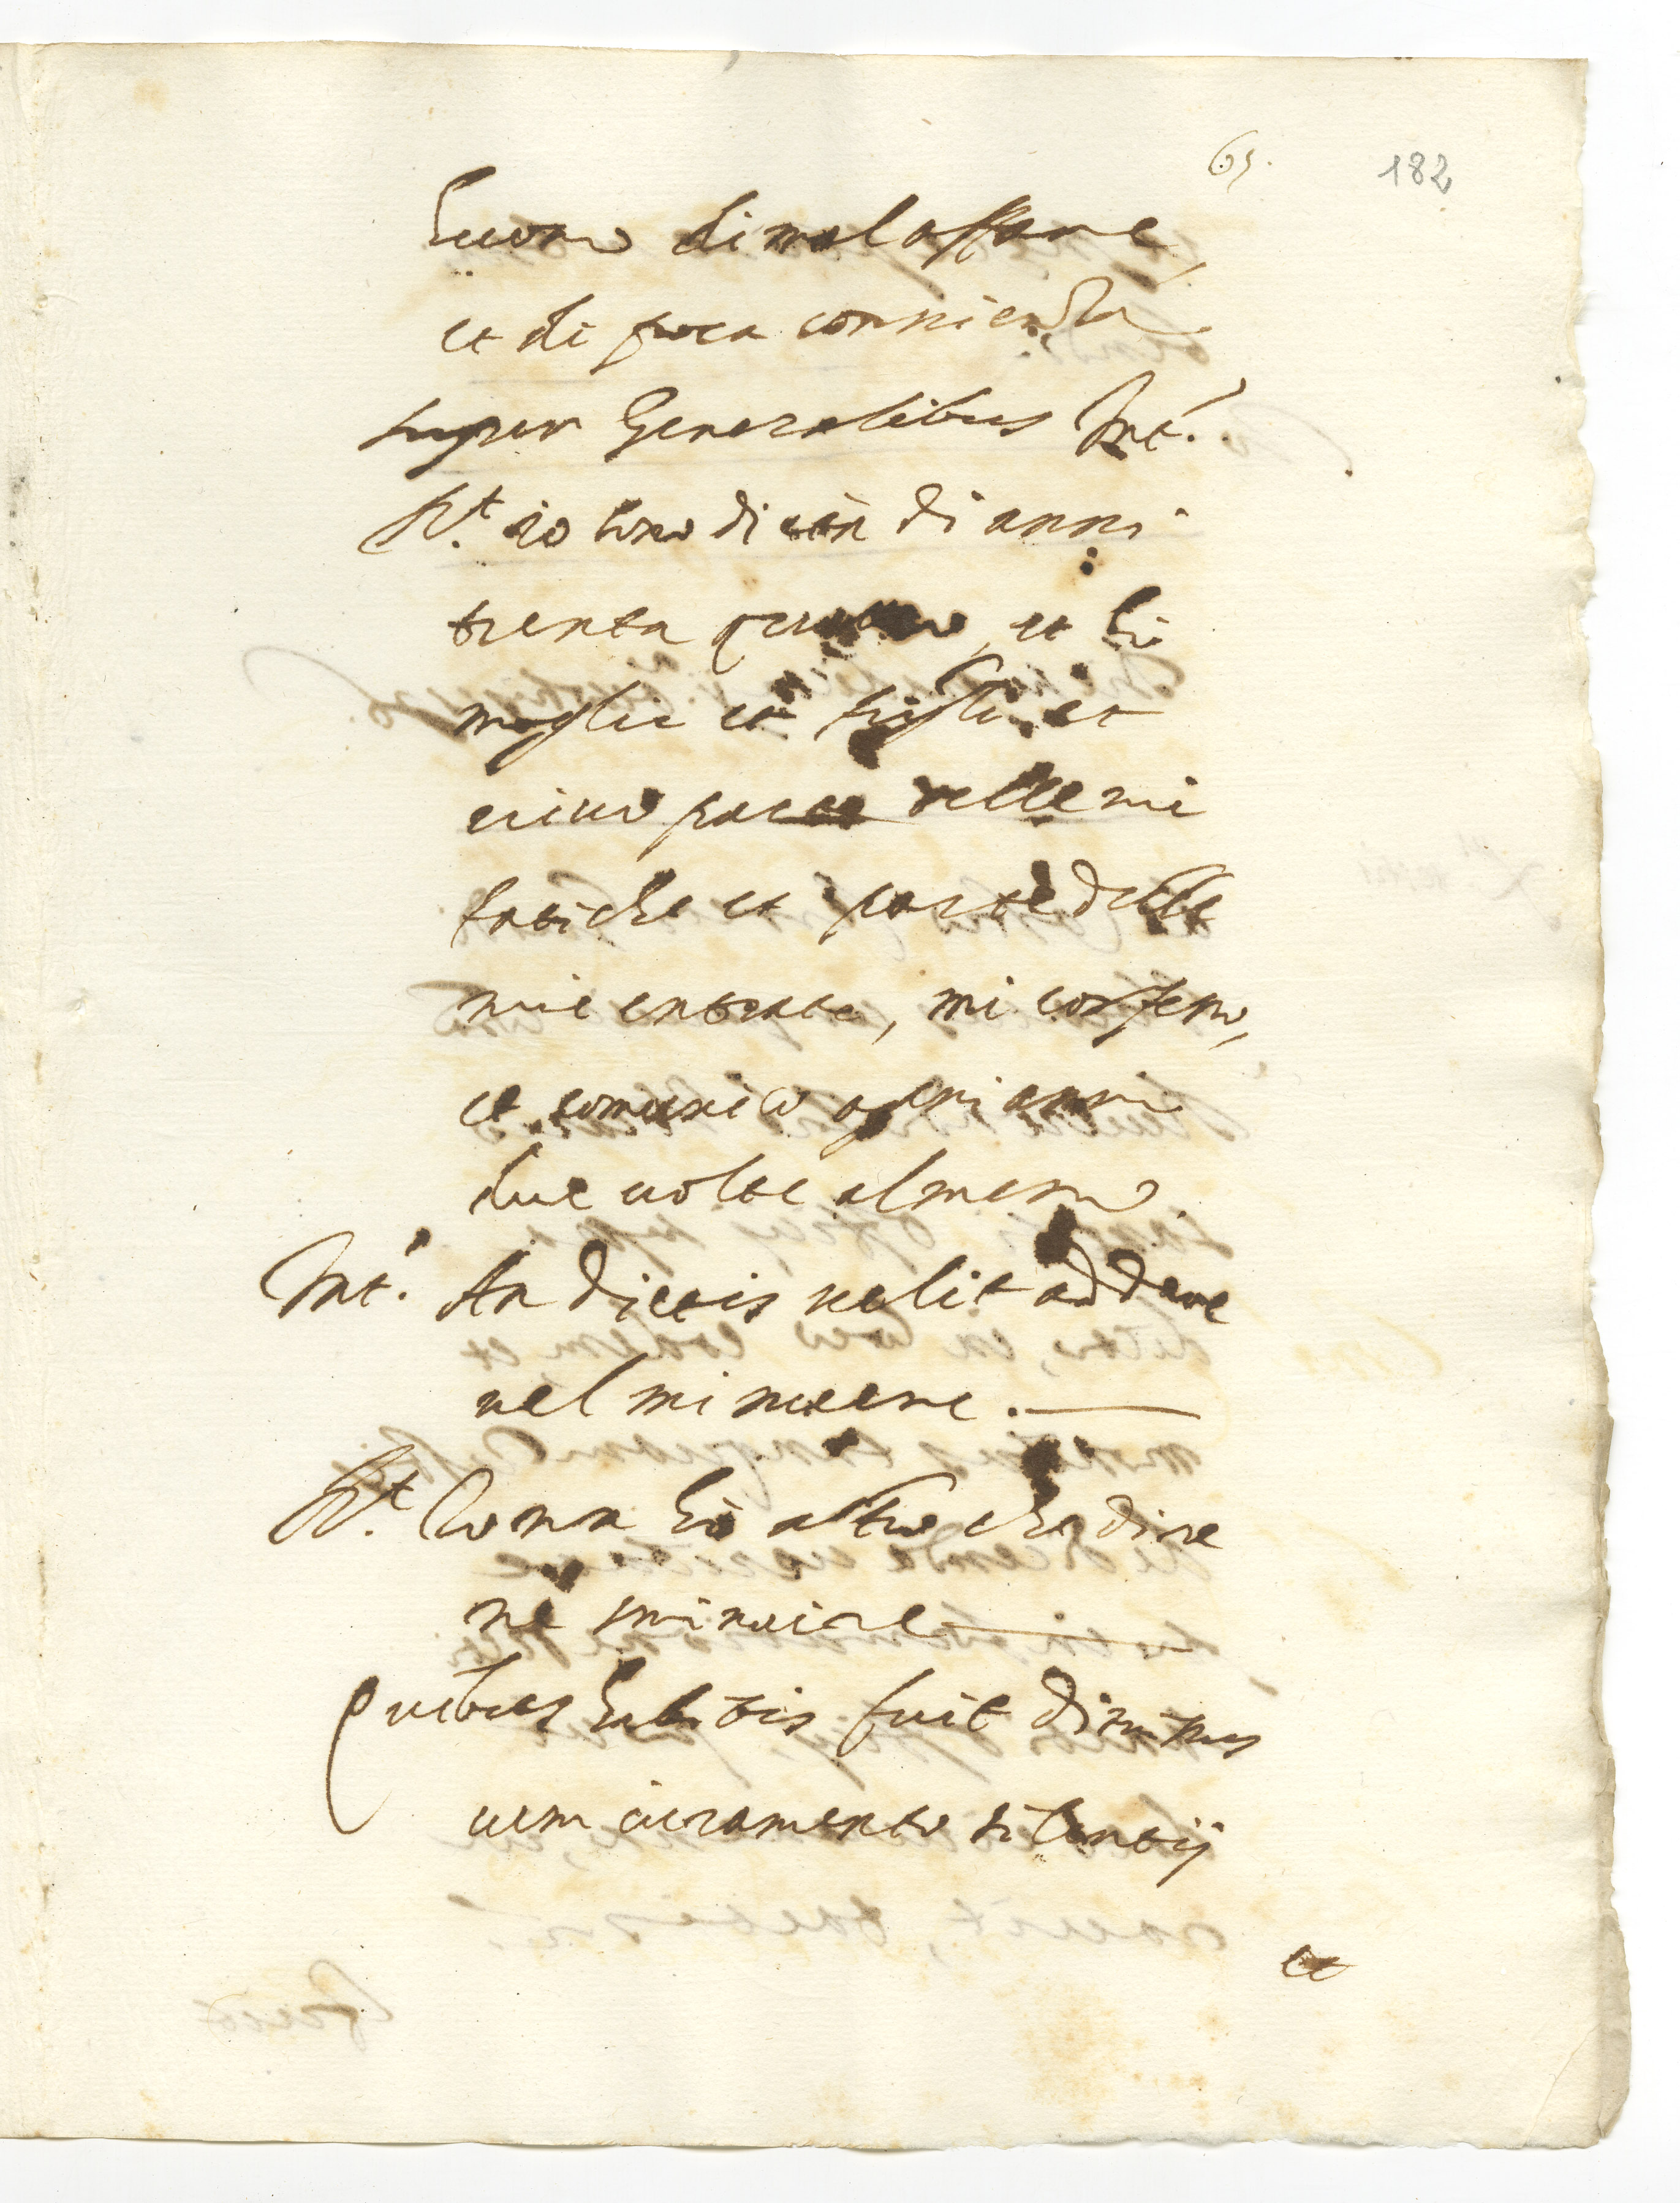 65. 182
huomo di mal affare
et di poca conscienza
super Generalibus Int.º
R.t io sono di età di anni
trenta quattro, et hò
moglie et figli, et
vivo parte delle mie
fatiche et parte delle
mie entrate, mi confesso,
et comunico ogni anno
due volte almeno.
Int.º An dictis velit addere
vel minuere.
R.t Io non hò altro che dire
nè minuire
Quibus habitis fuit dimissus
cum iuramento silentij
et